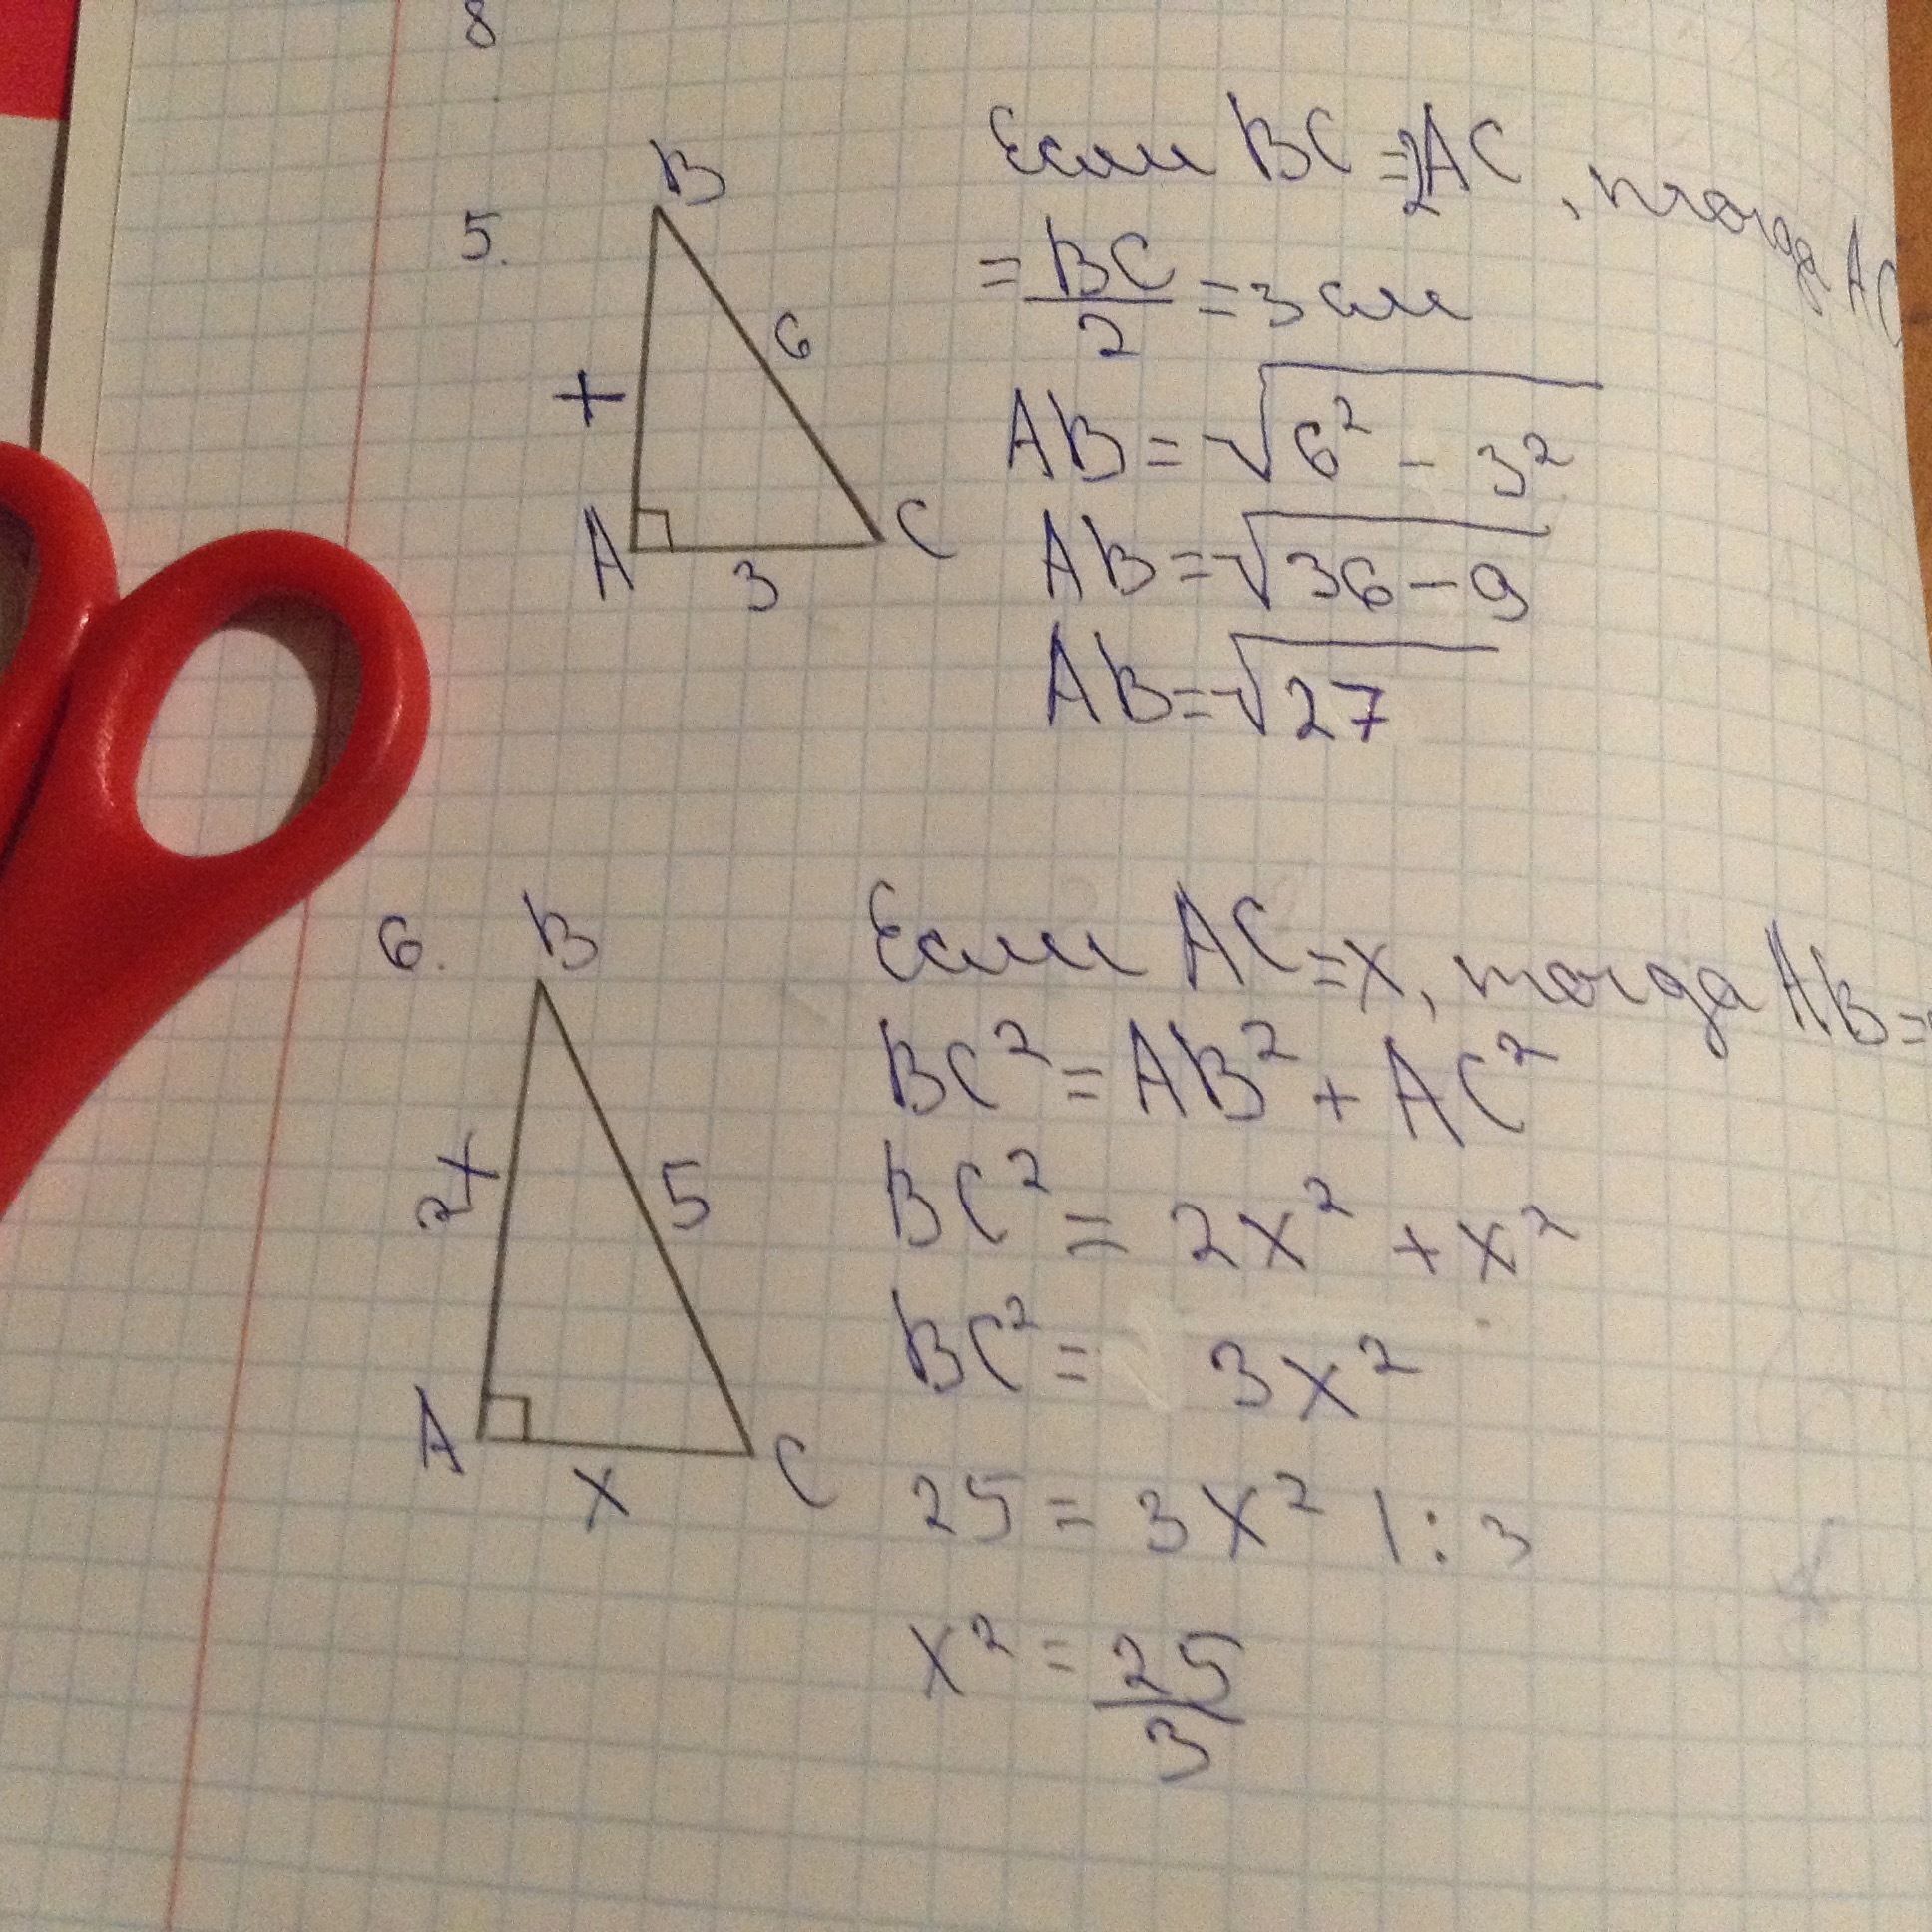 8
5.
B
6
x
A
3
C
Если BC=2AC, тогда AC
= BC/2 = 3 см
AB=√6² - 3²
AB=√36-9
AB=√27
6.
B
2x
5
A
x
C
Если AC=x, тогда AB=
BC²=AB²+AC²
BC²= 2x²+x²
BC²= 3x²
25= 3x² |:3
x²= 25/3